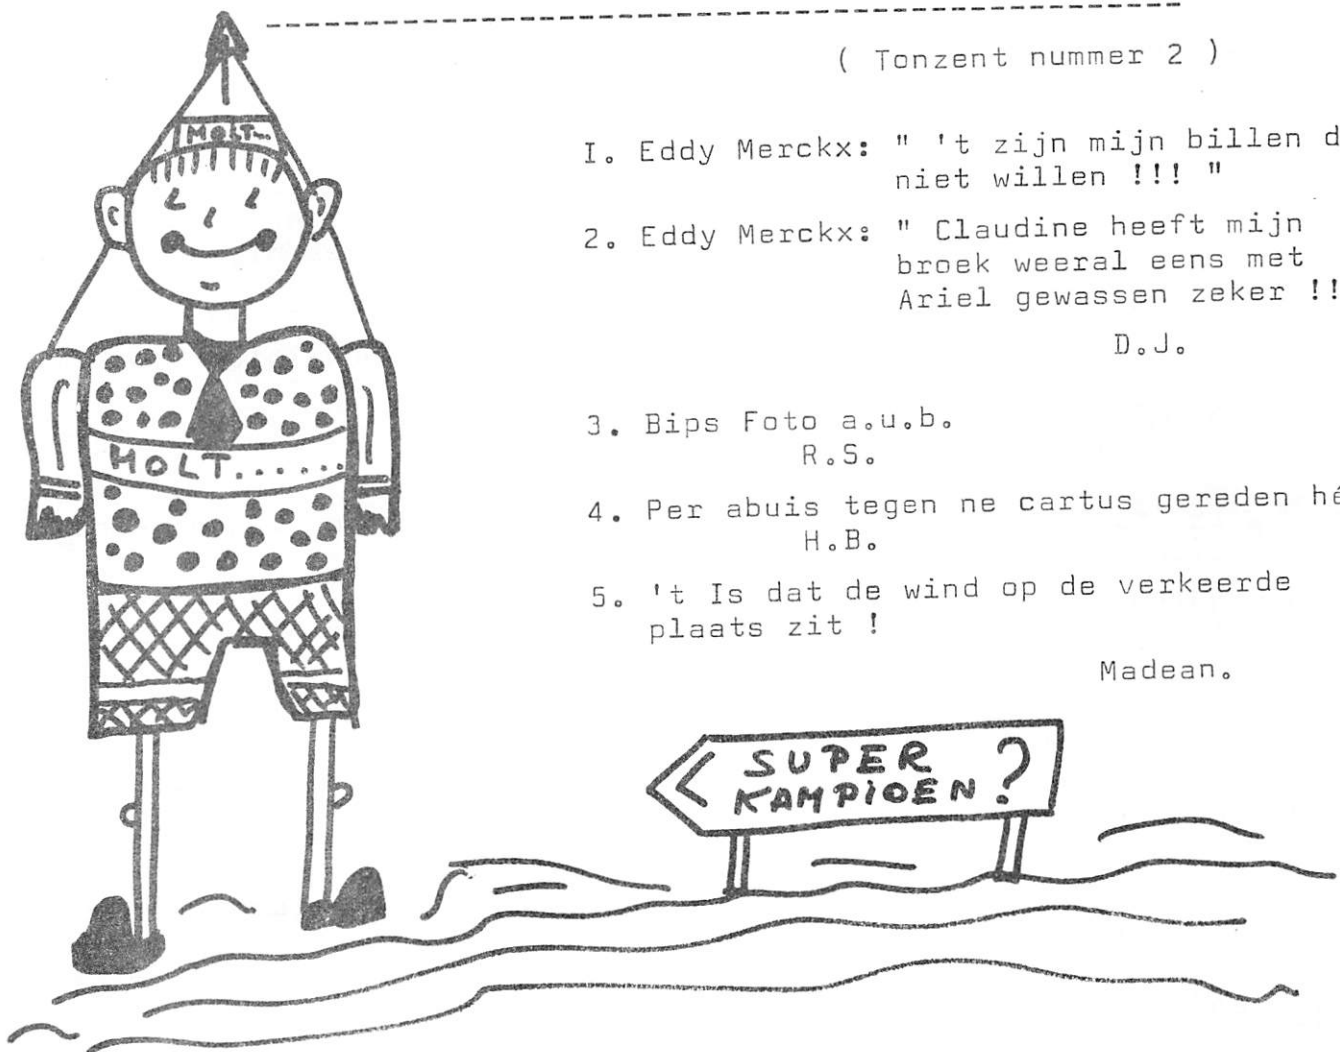 ( Tonzent nummer 2 )
MOLT...
I. Eddy Merckx: " 't zijn mijn billen d
niet willen !!! "
2. Eddy Merckx: " Claudine heeft mijn
broek weeral eens met
Ariel gewassen zeker !!
D.J.
3. Bips Foto a.u.b.
R.S.
MOLT.......
4. Per abuis tegen ne cartus gereden hé
H.B.
5. 't Is dat de wind op de verkeerde
plaats zit !
Madean.
SUPER
KAMPiOEN ?